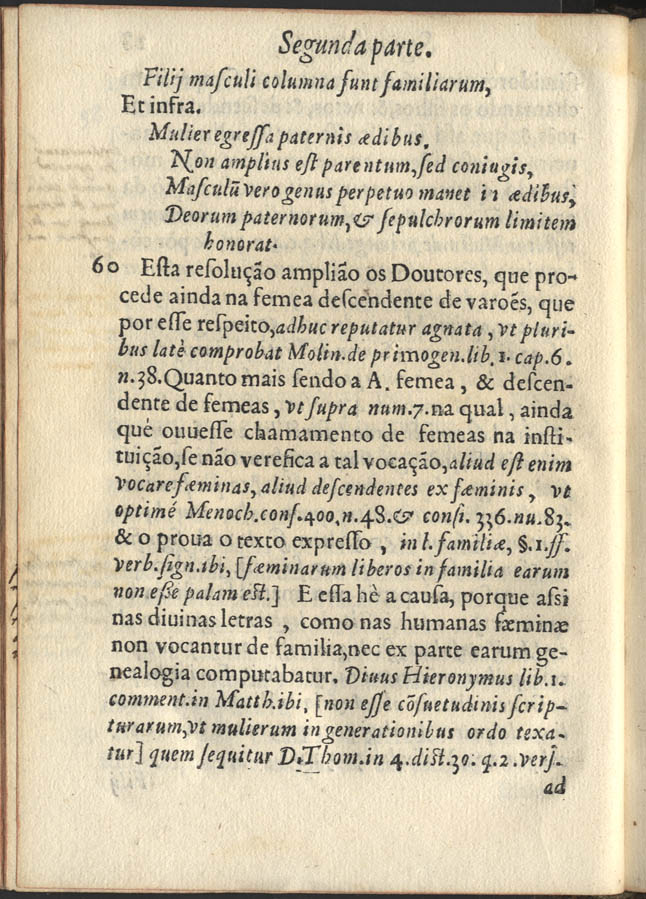 Segunda parte.
Filij maſculi columna ſunt familiarum,
Et infra.
Mulier egreſſa paternis ædibus.
Non amplius eſt parentum, ſed coniugis,
Maſculũ vero genus perpetuo manet in ædibus,
Deorum paternorum, & ſepulchrorum limitem
honorat.
60 Eſta reſolução amplião os Doutores, que pro-
cede ainda na femea deſcendente de varoẽs, que
por eſſe reſpeito, adhuc reputatur agnata, vt pluri-
bus latè comprobat Molin. de primogen. lib. 1. cap. 6.
n. 38. Quanto mais ſendo a A. femea, & deſcen-
dente de femeas, vt ſupra num. 7. na qual, ainda
què ouueſſe chamamento de femeas na inſti-
tuição, ſe não verefica a tal vocação, aliud eſt enim
vocare fæminas, aliud deſcendentes ex fæminis, vt
optimé Menoch. conſ. 400. n. 48. & conſi. 336. nu. 83.
& o proua o texto expreſſo, in l. familiæ, §. 1. ff.
verb. ſign. ibi, [fæminarum liberos in familia earum
non eſſe palam eſt.] E eſſa hè a cauſa, porque aſsi
nas diuinas letras, como nas humanas fæminæ
non vocantur de familia, nec ex parte earum ge-
nealogia computabatur. Diuus Hieronymus lib. 1.
comment. in Matth. ibi, [non eſſe cõſuetudinis ſcrip-
turarum, vt mulierum in generationibus ordo texa-
tur] quem ſequitur D. Thom. in 4. diſt. 30. q. 2. verſ.
ad